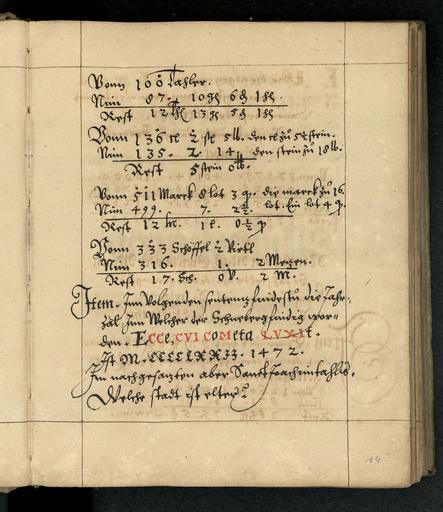 Vonn 100 taler.
Nim 87. 10 gh 6 h 1 hh
Rest 12 th 13 gh 5 h 1 hh
Vonn 136 ct 2 st 5 lb. den ct zů 5 stein.
Nim 135. 2. 14 den stein zů 18 lb.
Rest 5 stein 0 lb.
Vonn 511 Marck 8 lot 3 q. die marck zů 16
Nim 499. 7. 2½ lot. Ein lot 4 q.
Rest 12 M. 1 l. 0½ q
Vonn 333 Schöffel 2 Virtl
Nim 316. 1. 2 Metzen.
Rest 17 Sch. 0 V. 2 M.
Item. Inn Volgenden sententz findestu die Jahr-
zal Inn Welcher der Schneberg fündig wor-
den. ECCe CVI COMeta LVXIt.
Ist M.CCCCLXXII. 1472.
Im nachgesatzten aber Sanct Joachimsthalls.
Welche stadt ist elter?
14